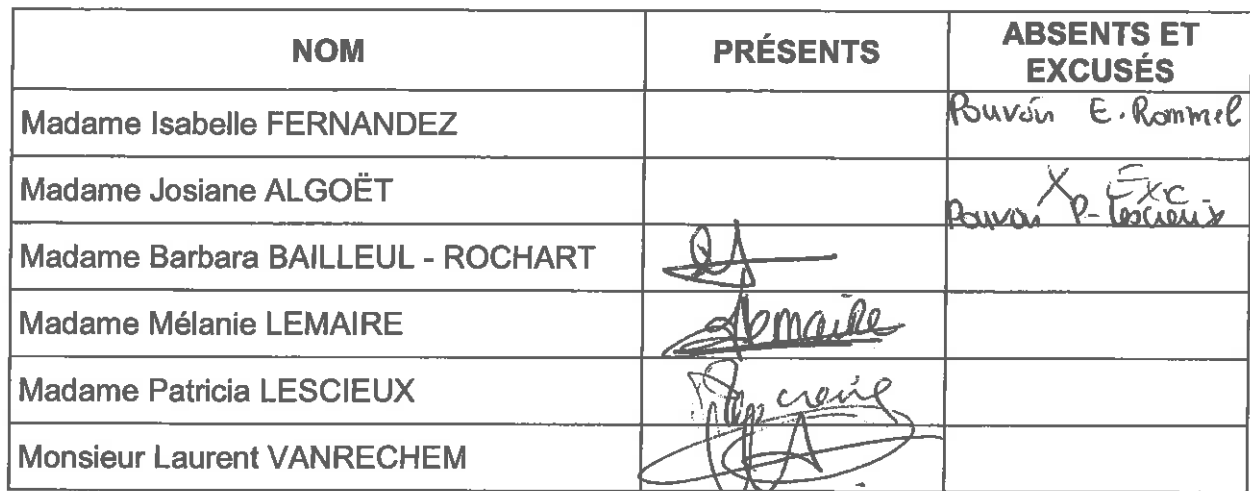 NOM PRÉSENTS ABSENTS ET
EXCUSÉS
Madame Isabelle FERNANDEZ Pouvoir E. Rommel
Madame Josiane ALGOËT X Exc
Pouvoir P. Lescieux
Madame Barbara BAILLEUL - ROCHART
Madame Mélanie LEMAIRE Lemaire
Madame Patricia LESCIEUX
Monsieur Laurent VANRECHEM